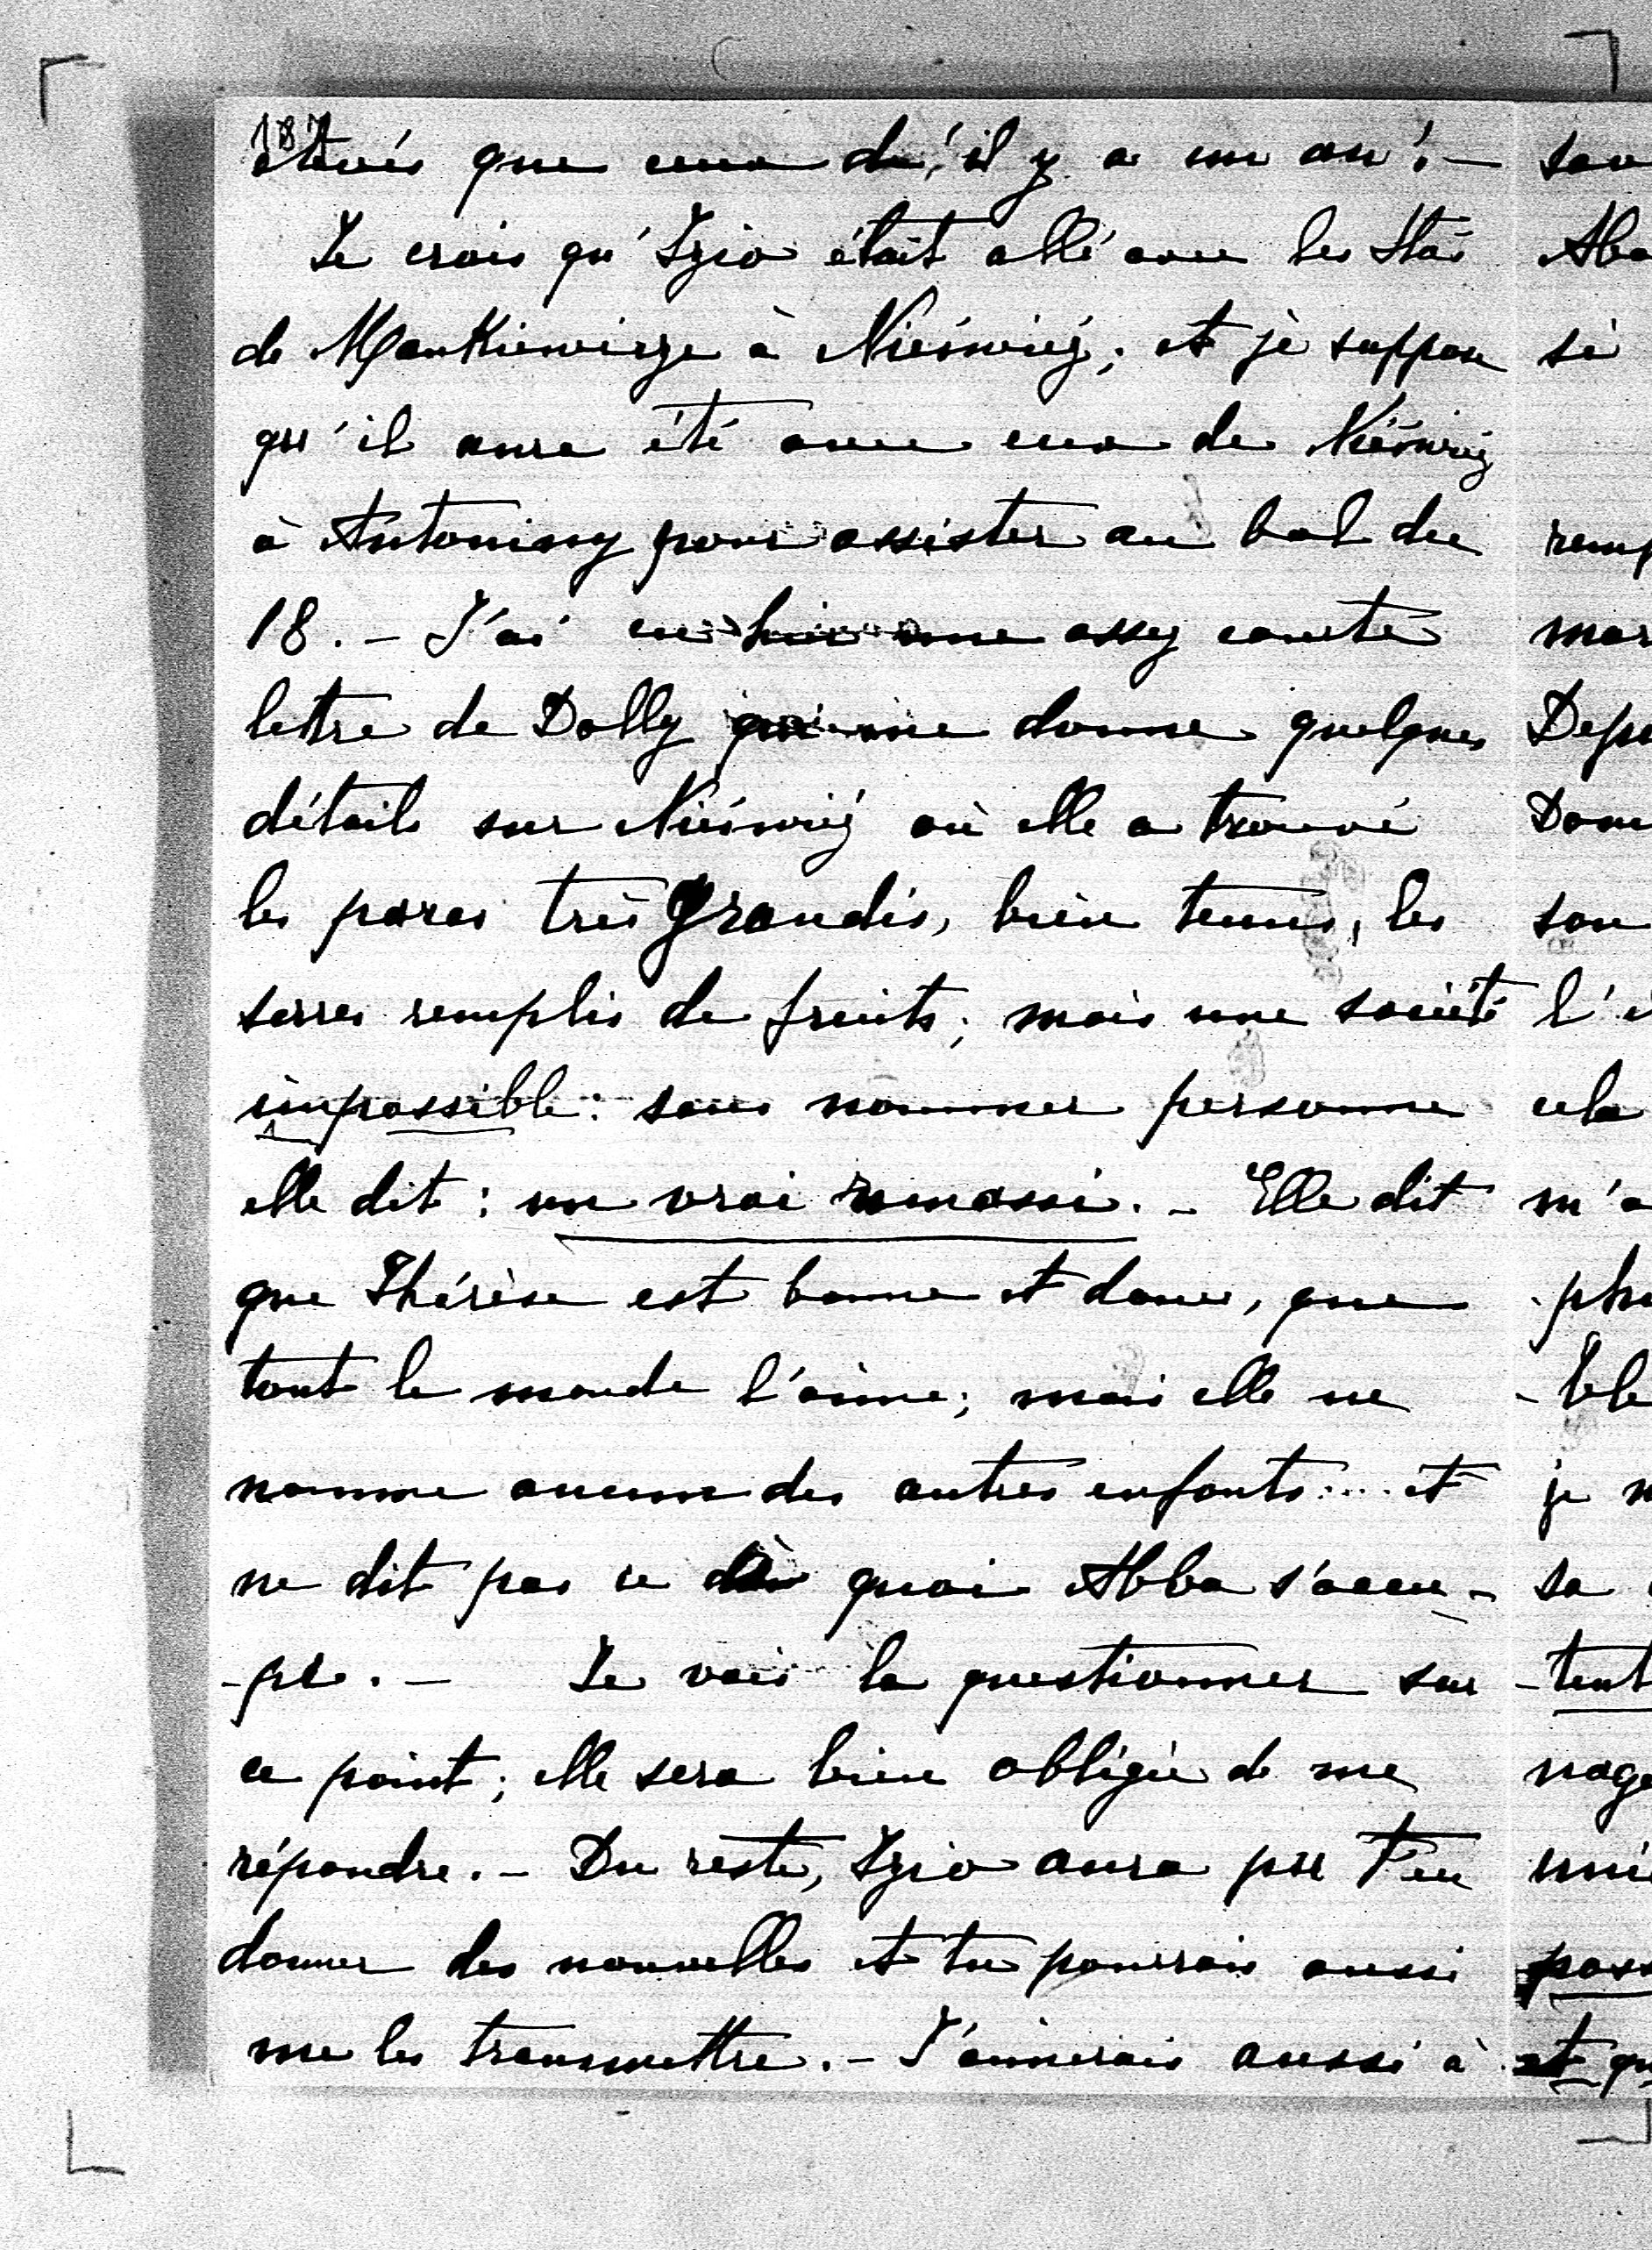 187
élevés que ceux du, il y a un an! —
Je crois qu'Izio était allé avec les Stas
de Mankiewicze à Nieśwież; et je suppose
qu'il aura été avec eux de Nieśwież
à Antoniny pour assister au bal du
18. — J'ai eu hier une assez courte
lettre de Dolly qui me donne quelques
détails sur Nieśwież où elle a trouvé
les parcs très grandis, bien tenus, les
serres remplis de fruits; mais une société
impossible: sans nommer personne
elle dit: un vrai ramassi. — Elle dit
que Thérèse est bonne et douce, que
tout le monde l'aime; mais elle ne
nomme aucun des autres enfants.... et
ne dit pas ce de quoi Abba s'occu-
-pe. — Je vais la questionner sur
ce point; elle sera bien obligée de me
répondre. — Du reste, Izio aura pu t'en
donner des nouvelles et tu pourrais aussi
me les transmettre. — J'aimerais aussi à
sav
Aba
si
remp
mar
Depu
Dom
son
l'
cela
m'a
-ble
je
sa
-tent
nage
poss
et qu